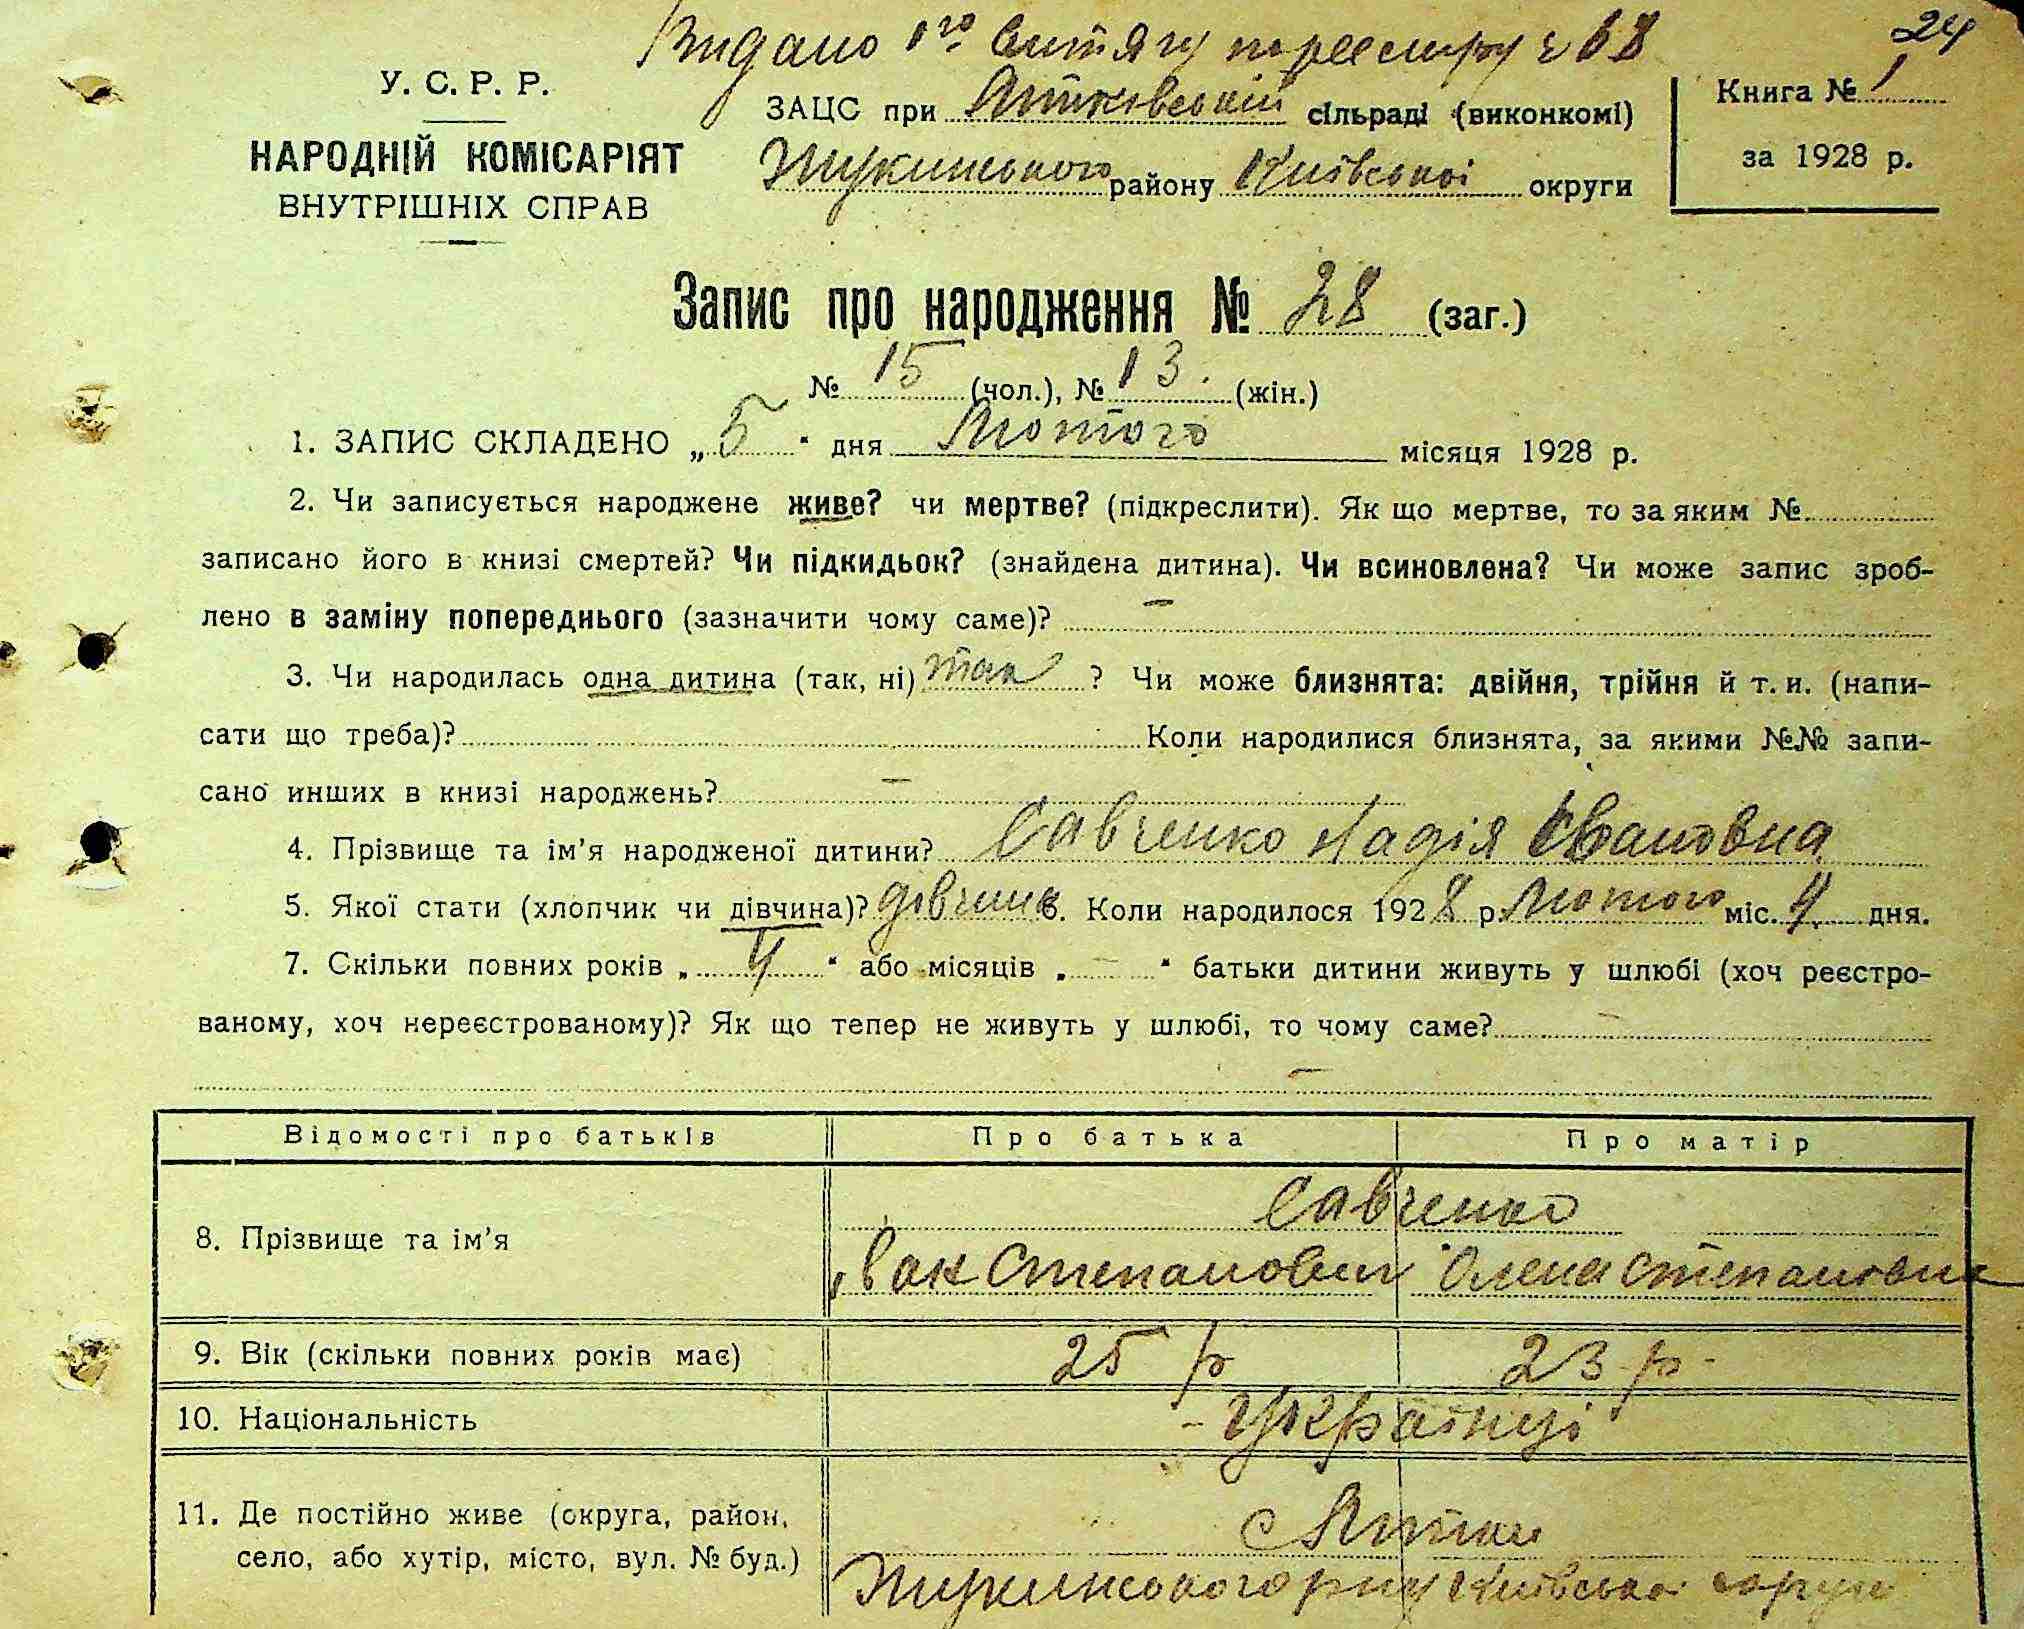 Видано 1го витягу по реєстру 68
24
У. С. Р. Р.
НАРОДНІЙ КОМІСАРІЯТ
ВНУТРІШНІХ СПРАВ
ЗАЦС при Літківській сільраді (виконкомі)
Жукинського району Київської округи
Книга № 1
за 1928 р.
Запис про народження № 28 (заг.)
№ 15 (чол.), № 13. (жін.)
1. ЗАПИС СКЛАДЕНО „5“ дня Лютого місяця 1928 р.
2. Чи записується народжене живе? чи мертве? (підкреслити). Як що мертве, то за яким №
записано його в книзі смертей? Чи підкидьок? (знайдена дитина). Чи всиновлена? Чи може запис зроб-
лено в заміну попереднього (зазначити чому саме)? —
3. Чи народилась одна дитина (так, ні) так ? Чи може близнята: двійня, трійня й т. и. (напи-
сати що треба)? Коли народилися близнята, за якими №№ запи-
сано инших в книзі народжень? —
4. Прізвище та ім’я народженої дитини? Савченко Надія Івановна
5. Якої стати (хлопчик чи дівчина)? дівчина 6. Коли народилося 1928 р. Лютого міс. 4 дня.
7. Скільки повних років „4“ або місяців „—“ батьки дитини живуть у шлюбі (хоч реєстро-
ваному, хоч нереєстрованому)? Як що тепер не живуть у шлюбі, то чому саме? —
—
Відомості про батьків Про батька Про матір
8. Прізвище та ім’я Савченко
Іван Степанович Олена Степановна
9. Вік (скільки повних років має) 25 р 23 р.
10. Національність Українці
11. Де постійно живе (округа, район, с Літки
село, або хутір, місто, вул. № буд.) Жукинського р-ну Київської округи